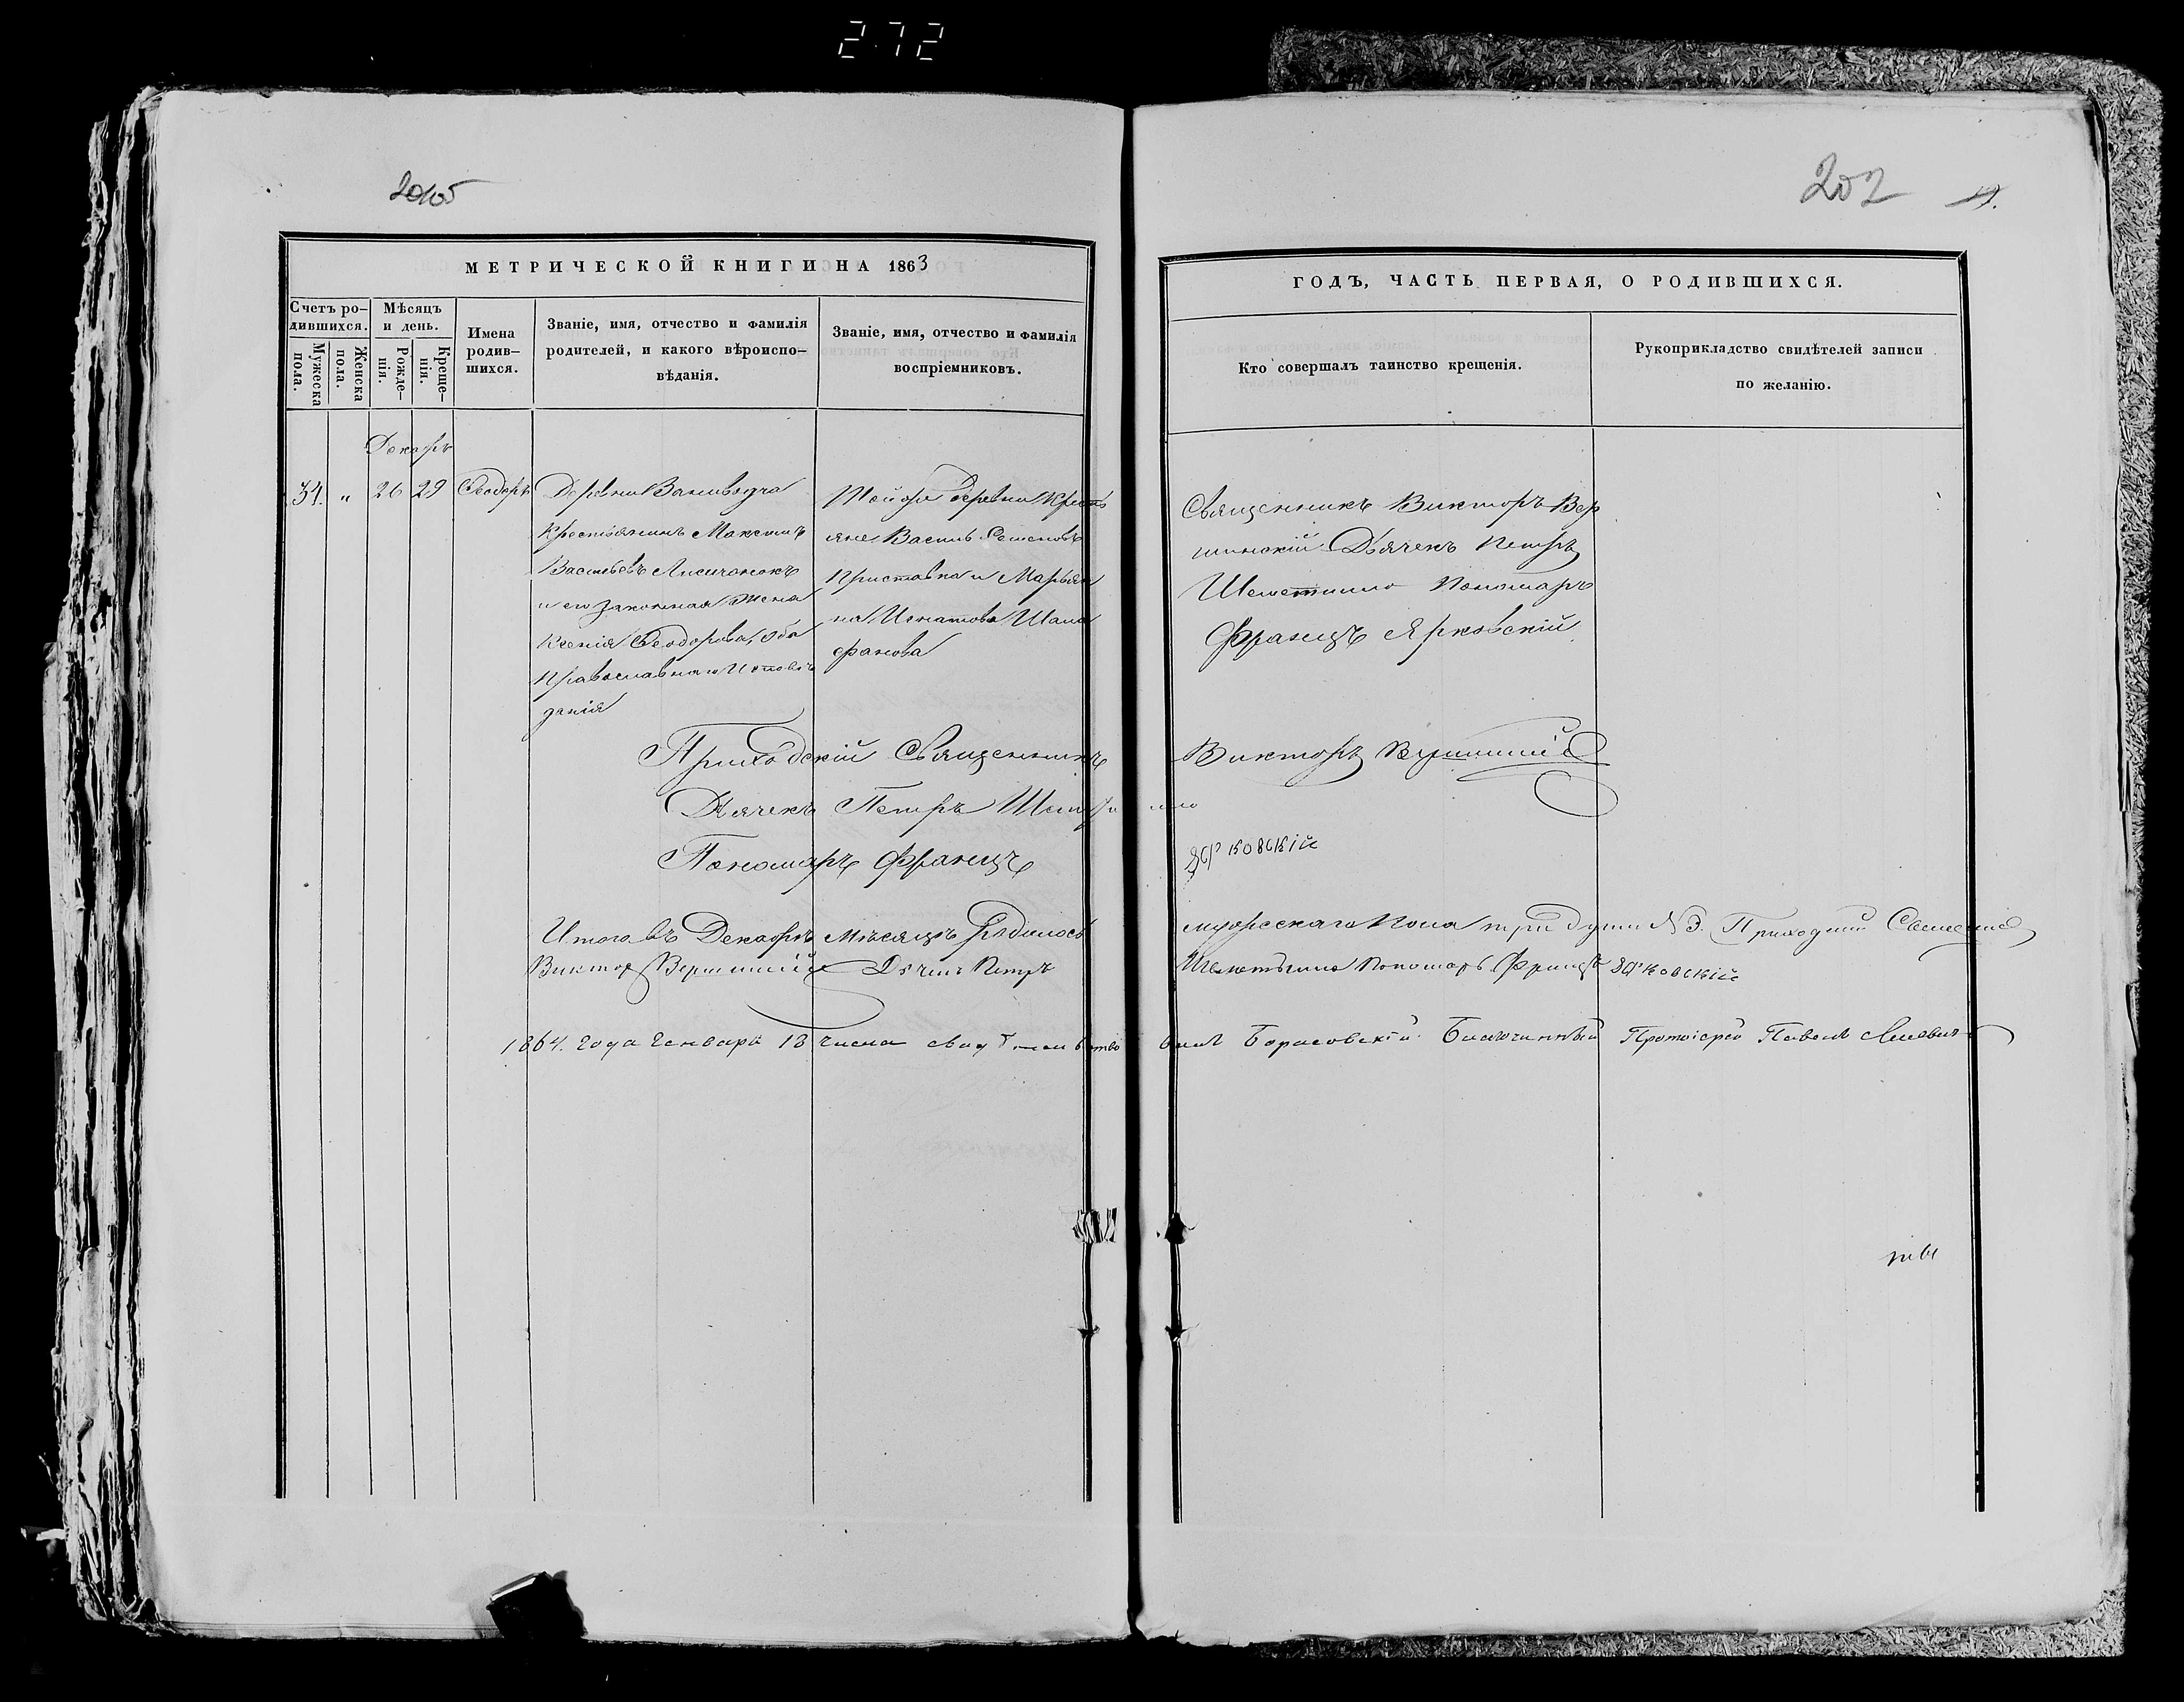 272
202
МЕТРИЧЕСКОЙ КНИГИ НА 1863
ГОДЪ, ЧАСТЬ ПЕРВАЯ, О РОДИВШИХСЯ.
Счетъ ро-
дившихся.
Мужеска
пола.
Женска
пола.
Мѣсяцъ
и день.
Рожде-
нія.
Креще-
нія.
Имена
родив-
шихся.
Званіе, имя, отчество и фамилія
родителей, и какого вѣроиспо-
вѣданія.
Званіе, имя, отчество и фамилія
воспріемниковъ.
Кто совершалъ таинство крещенія.
Рукоприкладство свидѣтелей записи
по желанію.
Декабръ
34. " 26 29 Ѳеодоръ
Деревни
Крестьянинъ Максимъ
Васильевъ Лисичонокъ
и его законная жена
Ксенія Ѳеодорова, оба
Православнаго Исповѣ
данія
Той же деревни Кресть
яне Василь Семеновъ
Приставка и Марьян
на Игнатова Шапа
франова
Священникъ Викторъ Вер
шинскій Дьячекъ Петръ
Шеметилло Пономаръ
Францъ Ярковскій
Приходскій Священникъ Викторъ
Дьячекъ Петръ
Пономаръ Францъ Ярковскій
Итого въ Декабрѣ мѣсяцѣ Родилось мужескаго пола три души № 3. Приходскій
Викторъ Петръ Шеметилло Пономаръ Францъ Ярковскій
1864. года Генваря 18 числа свидѣтельство валъ Борисовскій Благочинный Протоіерей Павелъ